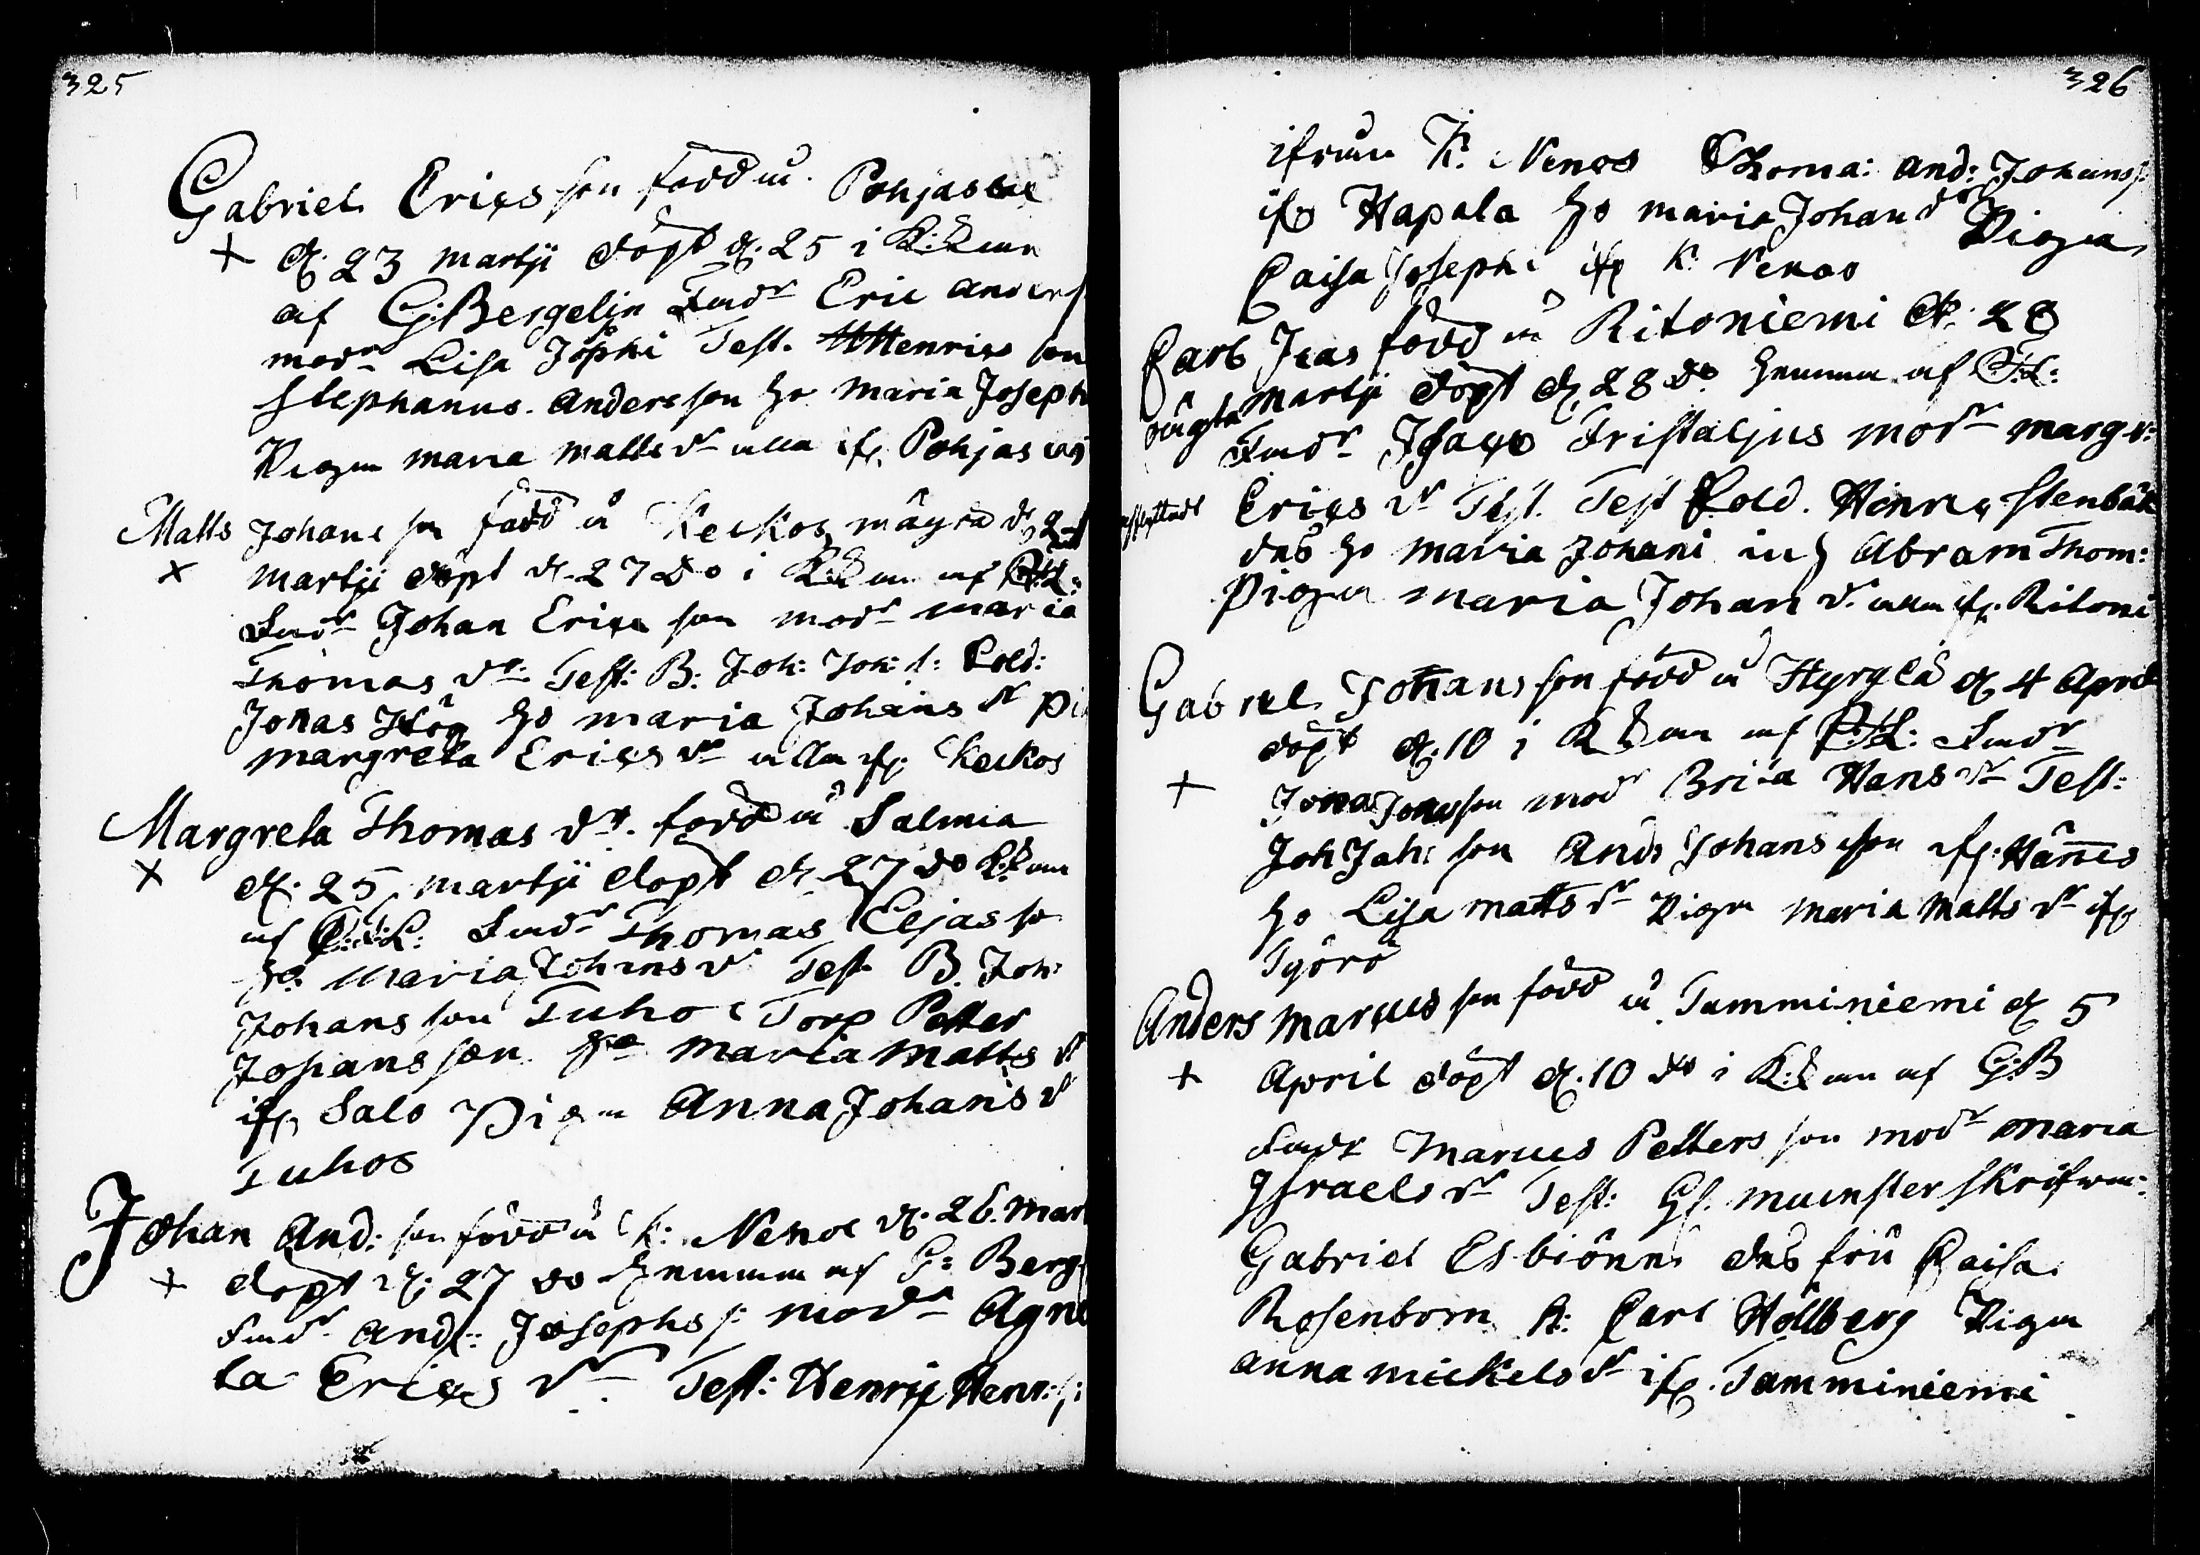 325
Gabriel Ericsson född i Pohjaslax
+ d. 23 Martij döpt d. 25 i K:k:an
af G: Bergelin Fadr Eric Anders
modr Lisa Jöphi Test. Henrics son
Stephanus Andersson Ho Maria Joseph
Pigan Maria Matts dr alla ifr. Pohjas
Matts Johans son född i Keckos d. 24
× Martij döpt d. 27 do i K:k:an af
Fadr Johan Erics son modr Maria
Thomas dr Test: B: Joh: Joh: s: Sold:
Jonas Hög Ho Maria Johans dr Pi
Margreta Erics dr alla ifr. Keckos
Margreta Thomas dr. född i Salmia
× d. 25 Martij döpt d. 27 do K:k:an
af Fadr Thomas Eljas so
Ho: Maria Johans dr Test B. Joh:
Johans son Tuhos Torp Petter
Johans son Ho Maria Matts dr
ifr Salo Pigan Anna Johans dr
Tuhos
Johan And: son född i K: Nenos d. 26. Mart
+ döpt d. 27 do hemma af G: Berg
Fadr. And: Josephs s: modr Agne
ta Erics dr Test: Henric Henr: s:
326
ifrån K. Nenos Thoma: And: Johanss:
ifr Hapala Ho Maria Johan dr Pigan
Caisa Josephi ifr K. Nenos
Carl Isac född i Ritoniemi d. 28
oägta Martij döpt d. 28 do hemma af
Fadr Isacus modr Margr:
Erics dr Test. Test Sold. Henric Stenbäk
des Ho Maria Johani Abram Thom:
Pigan Maria Johan dr. alla ifr. Ritoni
Gabriel Johans son född i Hyrylä d. 4 April
döpt d. 10 i K:k:an af Fadr
+ Jona Jonasson modr Brita Hans dr Test:
Joh Joh: son Ands Johans son ifr. Hännes
Ho Lisa Matts dr Pigan Maria Matts dr ifr
Työrö
Anders Marcus son född i Tamminiemi d. 5
+ April döpt d. 10 do i K:k:an af G:B
Fadr Marcus Petters son modr Maria
Israels dr Test: Hr. munster skrifwa:
Gabriel Esbiörn des fru Caisa
Rosenborn Carl Hällberg Pigan
Anna Mickels dr ifr. Tamminiemi